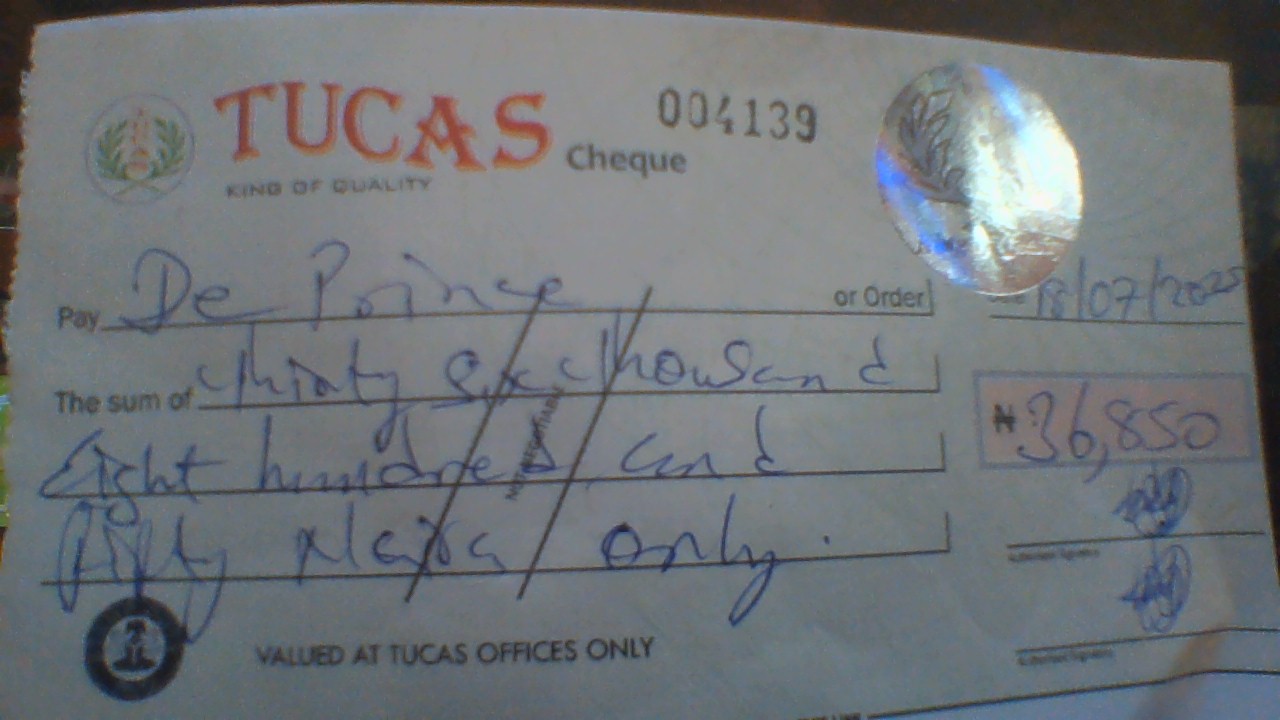 TUCAS
KING OF QUALITY
Cheque
004139
Pay De Prince or Order
18/07/2025
The sum of thirty six thousand
₦ 36,850
Eight hundred and
fifty Naira only.
VALUED AT TUCAS OFFICES ONLY